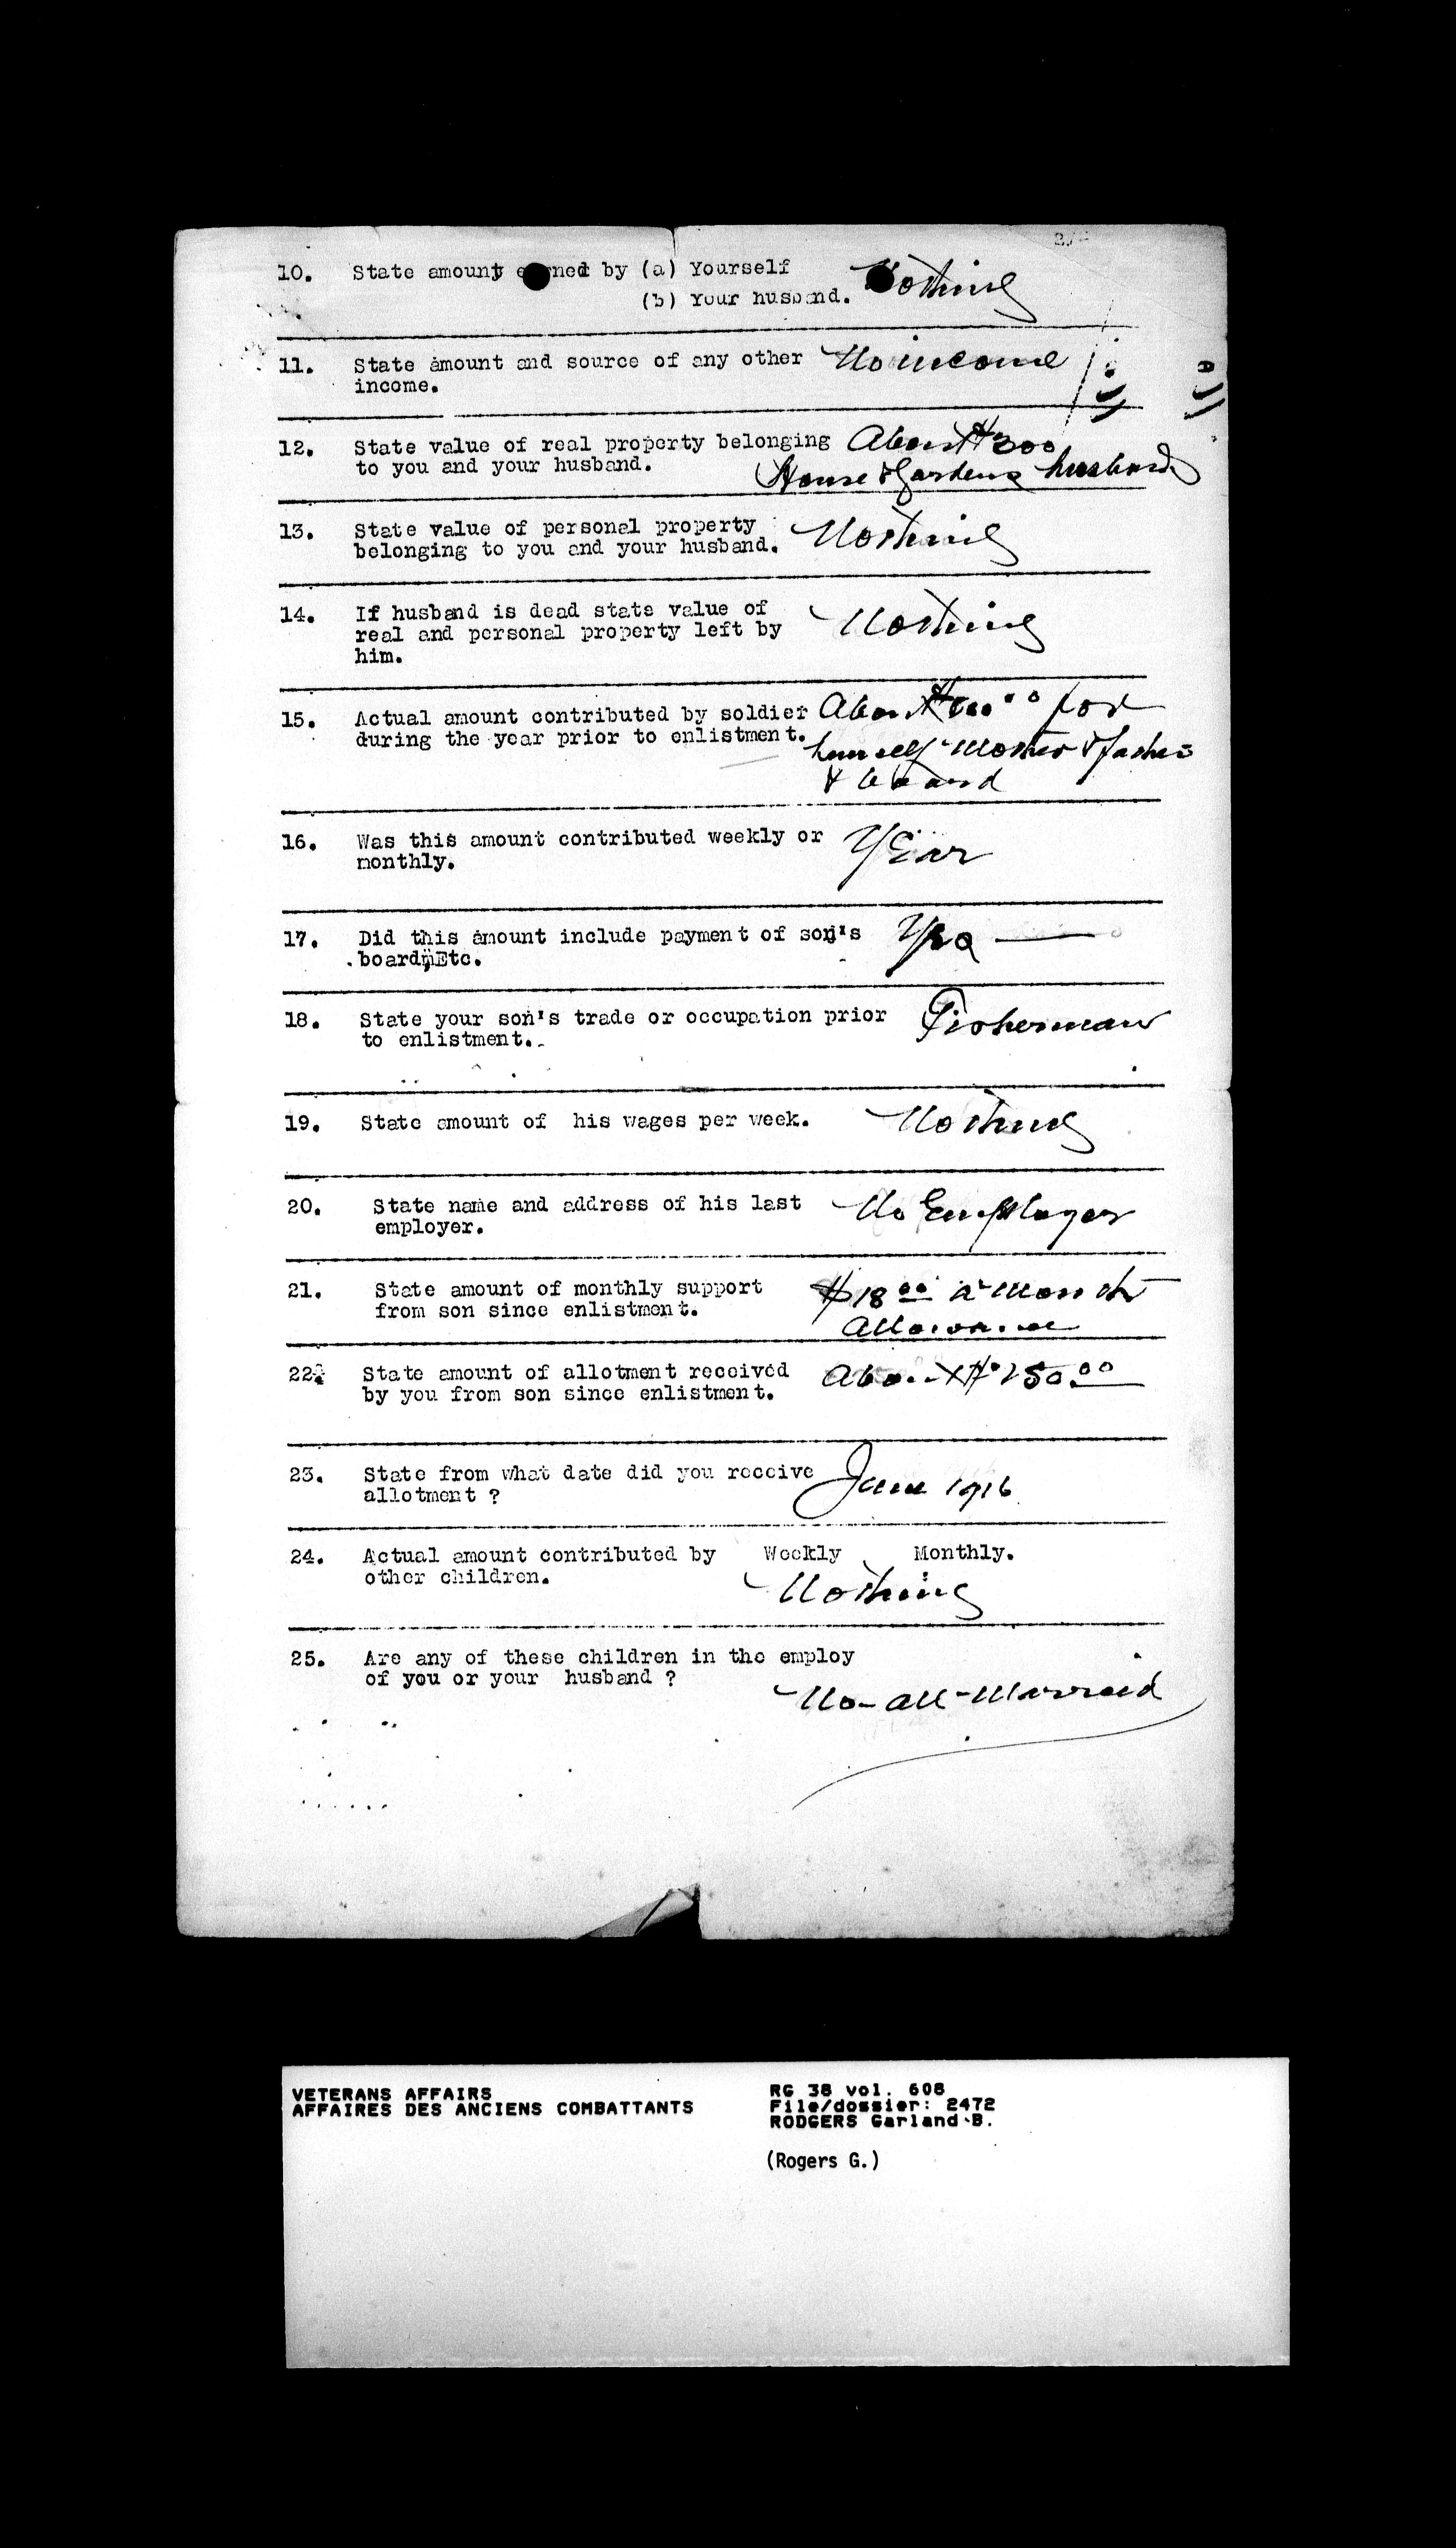 10. State amount earned by (a) Yourself Nothing
(b) Your husband.
11. State amount and source of any other No income
income.
12. State value of real property belonging About $300
to you and your husband. House & Gardens husband
13. State value of personal property Nothing
belonging to you and your husband.
14. If husband is dead state value of Nothing
real and personal property left by
him.
15. Actual amount contributed by soldier About for
during the year prior to enlistment. himself Mother & father
& board
16. Was this amount contributed weekly or Year
monthly.
17. Did this amount include payment of son's Yes
board, Etc.
18. State your son's trade or occupation prior Fisherman
to enlistment.
19. State amount of his wages per week. Nothing
20. State name and address of his last No Employer
employer.
21. State amount of monthly support $18 00 a Month
from son since enlistment. Allowance
22. State amount of allotment received About $150.00
by you from son since enlistment.
23. State from what date did you receive June 1916
allotment ?
24. Actual amount contributed by Weekly Monthly.
other children. Nothing
25. Are any of these children in the employ
of you or your husband ? No - all Marreid
VETERANS AFFAIRS RG 38 vol. 608
AFFAIRES DES ANCIENS COMBATTANTS File/dossier: 2472
RODGERS Garland B.
(Rogers G.)